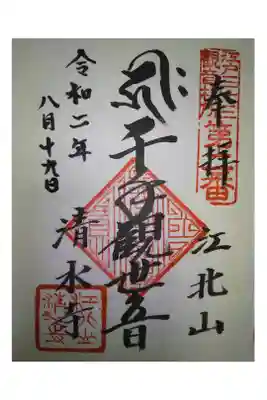 奉拝
江北山
千手観世音
清水寺
令和二年
八月十九日